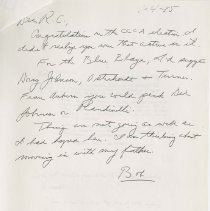 Dear R.C.,
Congratulations on the election. I
didn't realize you were that active in it.
For the Blue Blaze, I'd suggest
Doug Johnson, or Turner.
From Auburn you could you send Dex
Johnson or
Things are not going as well as
I had hoped here. I am thinking about
moving in with my father.
Bob